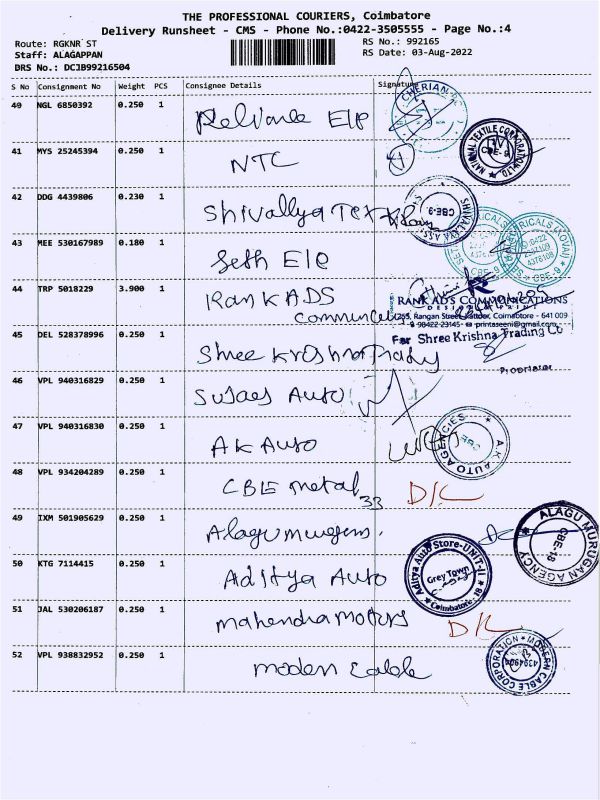 THE PROFESSIONAL COURIERS, Coimbatore
Delivery Runsheet - CMS - Phone No.:0422-3505555 - Page No.:4
Route: RGKNR ST
RS No.: 992165
Staff: ALAGAPPAN
RS Date: 03-Aug-2022
DRS No.: DCJB99216504
S No Consignment No Weight PCS Consignee Details Signature
40 NGL 6850392 0.250 1 Reliance Ele
CHERIAN
41 MYS 25245394 0.250 1 NTC
NATIONAL TEXTILE CORPORATION LTD. CBE-9
42 DDG 4439806 0.230 1 Shivallya Tex
SHIVALIYA CBE-9
43 MEE 530167989 0.180 1 Seth Ele
SETH ELECTRICALS (KOVAI) 0422 4376108 CBE-9
44 TRP 5018229 3.900 1 Rank ADS
RANK ADS COMMUNICATIONS
DESIGN PRINT
255, Rangan Street, Kattoor, Coimbatore - 641 009
98422 23145 printaseeni@gmail.com
45 DEL 528378996 0.250 1 Shree Krishna Trady
For Shree Krishna Trading Co
Proprietor
46 VPL 940316829 0.250 1 Sujaes Auto
47 VPL 940316830 0.250 1 AK Auto
A.K. AUTO AGENCIES
48 VPL 934204289 0.250 1 CBE metal 33 D/L
49 IXM 501905629 0.250 1 Alagumurgem.
ALAGU MURUGAN AGENCY CBE-18
50 KTG 7114415 0.250 1 Aditya Auto
Aditya Auto Store-UNIT-II Grey Town Coimbatore - 18
51 JAL 530206187 0.250 1 Mahendra Motors D/L
52 VPL 938832952 0.250 1 Moden Cable
MODERN CABLE CORPORATION